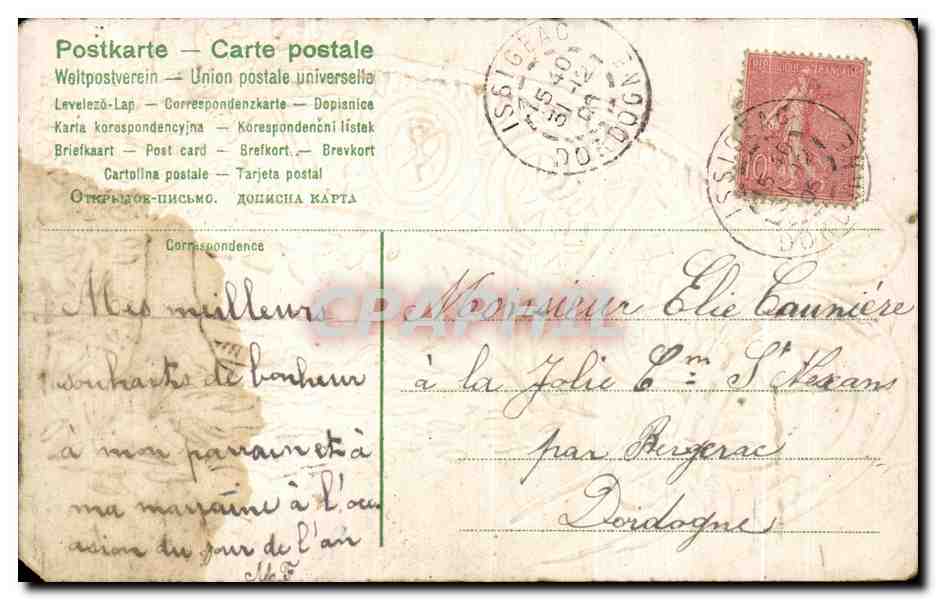 Postkarte — Carte postale
Weltpostverein — Union postale universelle
Levelező-Lap — Correspondenzkarte — Dopisnice
Karta korespondencyjna — Korespondenční lístek
Briefkaart — Post card — Brefkort — Brevkort
Cartolina postale — Tarjeta postal
Открытое-письмо. дописна карта
Correspondence
ISSIGEAC
15 40
31 12
DORDOGNE
RÉPUBLIQUE FRANÇAISE
10
ISSIGEAC
DORDOGNE
CPAPHIL
Mes meilleurs
souhaits de bonheur
à mon parrain et à
ma marraine à l'occa
asion du jour de l'an
M. F
Monsieur Elie Caunière
à la Jolie Cne St Nexans
par Bergerac
Dordogne